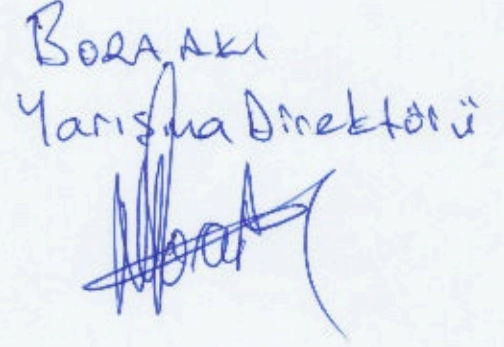 BORA AKI
Yarışma Direktörü